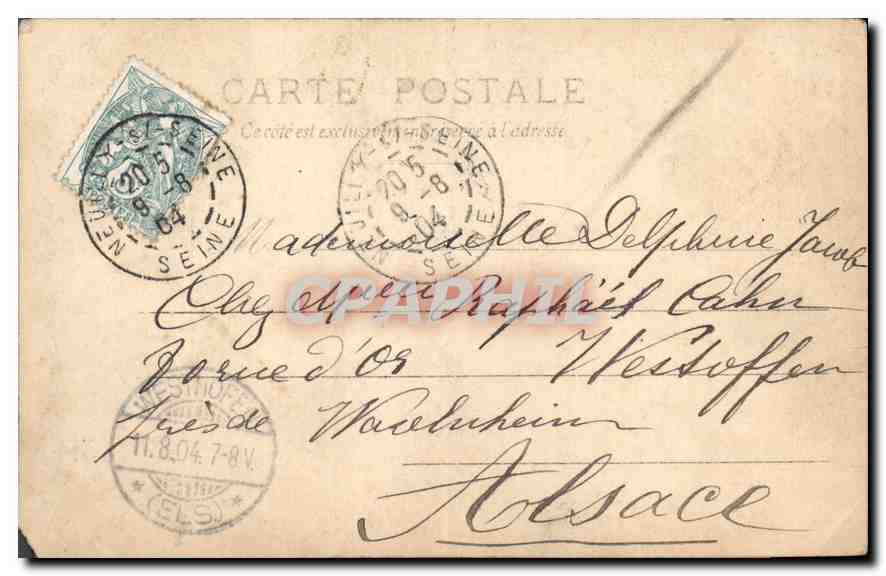 CARTE POSTALE
Ce côté est exclusivement réservé à l'adresse
NEUILLY-S/-SEINE
20 5
9 -8
04
SEINE
NEUILLY-S/-SEINE
20 5
9 -8
04
SEINE
Mademoiselle Delphine Jacob
Chez Raphaël Cahn
CARTAPHIL
d'Or Westoffen
près de
WESTHOFEN
11.8.04. 7-8 V.
* (ELS) *
Alsace